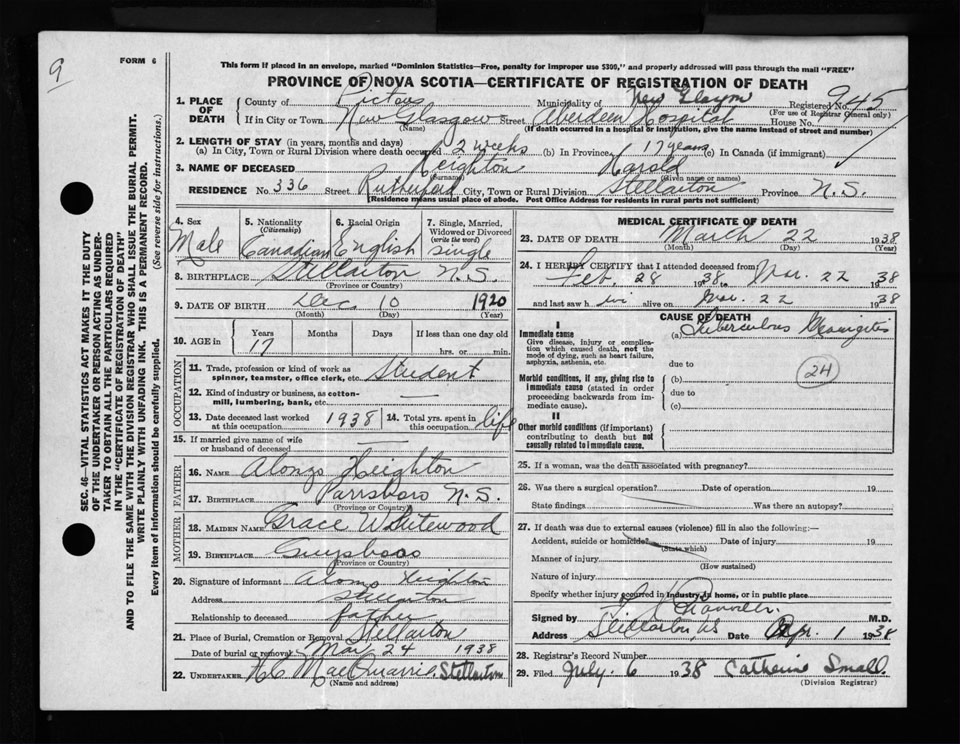 9
FORM 6
This form if placed in an envelope, marked "Dominion Statistics—Free, penalty for improper use $300," and properly addressed will pass through the mail "FREE"
PROVINCE OF NOVA SCOTIA—CERTIFICATE OF REGISTRATION OF DEATH
SEC. 46—VITAL STATISTICS ACT MAKES IT THE DUTY
OF THE UNDERTAKER OR PERSON ACTING AS UNDER-
TAKER TO OBTAIN ALL THE PARTICULARS REQUIRED
IN THE "CERTIFICATE OF REGISTRATION OF DEATH"
AND TO FILE THE SAME WITH THE DIVISION REGISTRAR WHO SHALL ISSUE THE BURIAL PERMIT.
WRITE PLAINLY WITH UNFADING INK. THIS IS A PERMANENT RECORD.
Every item of information should be carefully supplied. (See reverse side for instructions.)
1. PLACE OF DEATH County of Pictou Municipality of New Glasgow Registered No. 945
(For use of Registrar General only)
If in City or Town New Glasgow Street Aberdeen Hospital House No.
(Name) (If death occurred in a hospital or institution, give the name instead of street and number)
2. LENGTH OF STAY (in years, months and days)
(a) In City, Town or Rural Division where death occurred 2 weeks (b) In Province 17 years (c) In Canada (if immigrant)
3. NAME OF DECEASED Heighton Harold
(Surname) (Given name or names)
RESIDENCE No. 336 Street Rutherford City, Town or Rural Division Stellarton Province N.S.
(Residence means usual place of abode. Post Office Address for residents in rural parts not sufficient)
4. Sex 5. Nationality (Citizenship) 6. Racial Origin 7. Single, Married, Widowed or Divorced (write the word)
Male Canadian English Single
8. BIRTHPLACE Stellarton N.S.
(Province or Country)
9. DATE OF BIRTH Dec 10 1920
(Month) (Day) (Year)
10. AGE in Years Months Days If less than one day old
17 hrs. or min.
OCCUPATION
11. Trade, profession or kind of work as spinner, teamster, office clerk, etc. Student
12. Kind of industry or business, as cotton-mill, lumbering, bank, etc. —
13. Date deceased last worked at this occupation 1938 14. Total yrs. spent in this occupation life
15. If married give name of wife or husband of deceased —
FATHER
16. NAME Alonzo Heighton
17. BIRTHPLACE Parrsboro N.S.
(Province or Country)
MOTHER
18. MAIDEN NAME Grace Whitewood
19. BIRTHPLACE Guysboro
(Province or Country)
20. Signature of informant Alonzo Heighton
Address Stellarton
Relationship to deceased Father
21. Place of Burial, Cremation or Removal Stellarton
Date of burial or removal Mar 24 1938
22. UNDERTAKER MacQuarrie Stellarton
(Name and address)
MEDICAL CERTIFICATE OF DEATH
23. DATE OF DEATH March 22 1938
(Month) (Day) (Year)
24. I HEREBY CERTIFY that I attended deceased from
Feb. 28 1938 to Mar. 22 1938
and last saw h im alive on Mar. 22 1938
CAUSE OF DEATH
I
Immediate cause (a) Tuberculous Meningitis
Give disease, injury or complication which caused death, not the mode of dying, such as heart failure, asphyxia, asthenia, etc.
due to
24
Morbid conditions, if any, giving rise to immediate cause (stated in order proceeding backwards from immediate cause). (b)
due to
(c)
II
Other morbid conditions (if important) contributing to death but not causally related to immediate cause.
25. If a woman, was the death associated with pregnancy?
26. Was there a surgical operation? Date of operation 19
State findings Was there an autopsy?
27. If death was due to external causes (violence) fill in also the following:—
Accident, suicide or homicide? Date of injury 19
(State which)
Manner of injury
(How sustained)
Nature of injury
Specify whether injury occurred in Industry, in home, or in public place
Signed by M.D.
Address Stellarton NS Date Apr. 1 1938
28. Registrar's Record Number
29. Filed July 6 1938 Catherine Small
(Division Registrar)